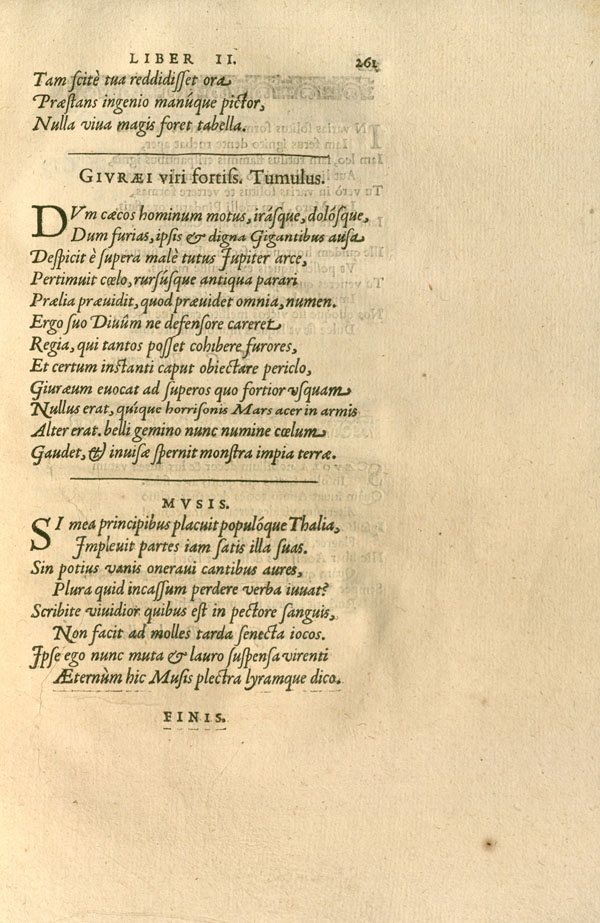 LIBER II. 261
Tam scitè tua reddidisset ora
Præstans ingenio manúque pictor,
Nulla viua magis foret tabella.
GIVRÆI viri fortiss. Tumulus.
DVm cæcos hominum motus, irásque, dolósque,
Dum furias, ipsis & digna Gigantibus ausa
Despicit è supera malè tutus Jupiter arce,
Pertimuit cœlo, rursúsque antiqua parari
Prælia præuidit, quod præuidet omnia, numen.
Ergo suo Diuûm ne defensore careret
Regia, qui tantos posset cohibere furores,
Et certum instanti caput obiectare periclo,
Giuræum euocat ad superos quo fortior vsquam
Nullus erat, quíque horrisonis Mars acer in armis
Alter erat. belli gemino nunc numine cœlum
Gaudet, & inuisæ spernit monstra impia terræ.
MVSIS.
SI mea principibus placuit populóque Thalia,
Jmpleuit partes iam satis illa suas.
Sin potius vanis oneraui cantibus aures,
Plura quid incassum perdere verba iuuat?
Scribite viuidior quibus est in pectore sanguis,
Non facit ad molles tarda senecta iocos.
Jpse ego nunc muta & lauro suspensa virenti
Æternùm hic Musis plectra lyramque dico.
FINIS.